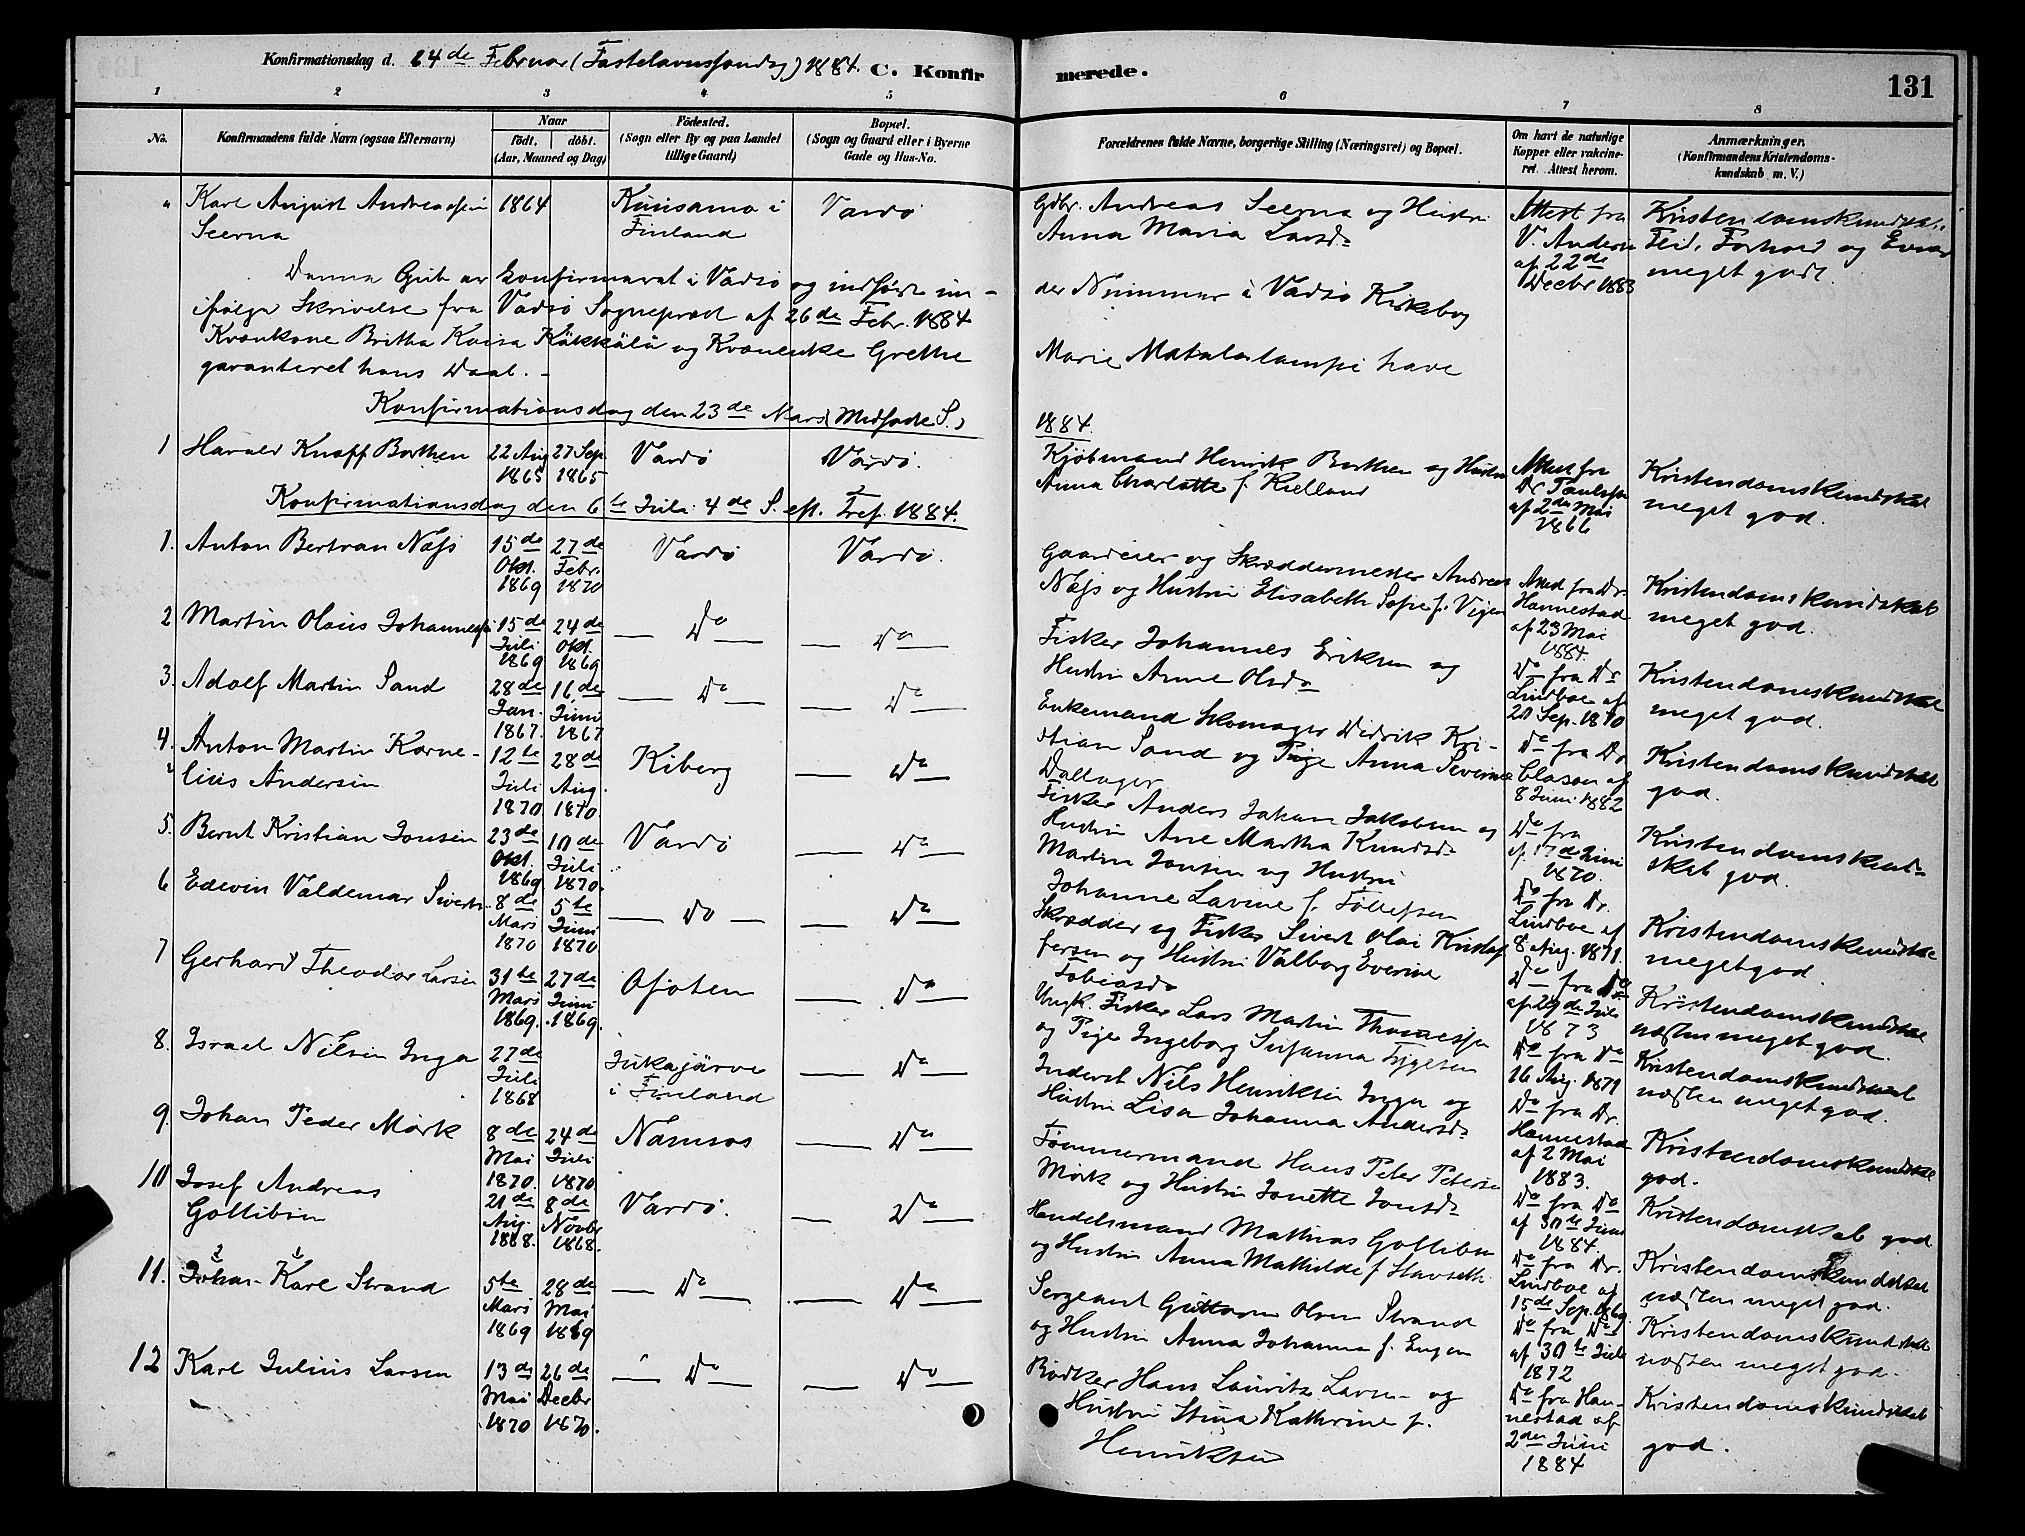 Konfirmationsdag d. 24de Februar (Fastelavnssøndag) 1884. C. Konfir merede. 131
1 2 3 4 5 6 7 8
No. Konfirmandens fulde Navn (ogsaa Efternavn) Naar født. døbt. (Aar, Maaned og Dag) Födested. (Sogn eller By og paa Landet tillige Gaard) Bopæl. (Sogn og Gaard eller i Byerne Gade og Hus-No. Forældrenes fulde Navne, borgerlige Stilling (Næringsvei) og Bopæl. Om havt de naturlige Kopper eller vakcineret. Attest herom. Anmærkninger. (Konfirmandens Kristendomskundskab m. V.)
" Karl August Andreassen 1864 Kuusamo i Vardö Gdbr. Andreas Seerna og Hustru Attest fra Kristendomskundskab,
Seerna Finland Anna Maria Larsdr V. Andersen Flid, Forhold og Evner
af 22de meget godt.
Decbr 1883
Denne Gut er konfirmeret i Vadsö og indført under Nummer i Vadsö Kirkebog
ifølge Skrivelse fra Vadsö Sogneprest af 26de Febr. 1884
Kvænkone Britha Kaisa Käkkälä og Kvænenke Grethe Marie Matalalampi have
garanteret hans Daab. -
Konfirmationsdag den 23de Mars (Midfaste S.) 1884.
1 Harald Knoff Borthen 22 Aug 27 Sep. Vardö Vardö. Kjøbmand Henrik Borthen og Hustru Attest fra Kristendomskundskab
1865 1865 Anna Charlotte f. Kielland Dr meget god.
af 2den Mai
1866
Konfirmationsdag den 6te Juli 4de S. eft. Tref. 1884.
1. Anton Bertran Næss 15de 27de Vardö Vardö. Gaardeier og Skræddermester Andreas Attest fra Dr. Kristendomskundskab
Okt. Febr. Næss og Hustru Elisabeth Sofie f. Hannestad meget god.
1869 1870 af 23 Mai
1884.
2 Martin Olaus Johannessen 15de 24de — Do — — Do — Fisker Johannes Eriksen og Do fra Dr Kristendomskundskab
Juli Okt. Hustru Anne Olsdr Lindboe af meget god.
1869 1869 20 Sep. 1870
3. Adolf Martin Sand 28de 16de — Do — — Do — Enkemand Skomager Didrik Kri- Do fra Dr. Kristendomskundskab
Jan. Juni stian Sand og Pige Anna Severine af god.
1867. 1867 Dallager 8 Juni 1882
4. Anton Martin Korne- 12te 28de Kiberg — Do — Fisker Anders Johan Jakobsen og Do fra Kristendomskund-
lius Andersen Juli Aug. Hustru Ane Martha Knudsdr af 17de Juni skab god.
1870 1870. 1870.
5. Bernt Kristian Jonsen 23de 10de Vardö — Do — Martin Jonsen og Hustru Do fra Dr. Kristendomskundskab
Okt. Juli Johanne Lavine f. Tollefsen Lindboe af meget god.
1869 1870. 8 Aug. 1871.
6 Edevin Valdemar Sivertsen 8de 5te — Do — — Do — Skrædder og Fisker Sivert Olai Kristof Do fra Do Kristendomskundskab
Mars Juni fersen og Hustru Valborg Everine af 29de Juli næsten meget god.
1870 1870. Tobiasdr 1873
7 Gerhard Theodor Larsen 31te 27de Ofoten — Do — Ungk. Fisker Lars Martin Thomessen Do fra Do Kristendomskundskab
Mars Juni og Pige Ingeborg Susanna 16 Aug. 1871 næsten meget god.
1869. 1869.
8. Israel Nilsen Inga 27de Jukajärve — Do — Inderst Nils Henriksen Inga og Do fra Dr. Kristendomskundskab
Juli i Finland Hustru Lisa Johanna Andersdr Hannestad god.
1868 af 2 Mai
1883.
9. Johan Peder Mörk 8de 24de Namsos — Do — Tømmermand Hans Peter Petersen Do fra Do Kristendomskab god
Mai Juli Mörk og Hustru Jonette Jonsdr af 30te Juni
1870. 1870 1884.
10 Josef Andreas 21de 8de Vardö. — Do — Handelsmand Mathias Gottlibsen Do fra Dr. Kristendomskundskab
Gottlibsen Aug. Novbr og Hustru Anna Mathilde f. Lindboe af næsten meget god.
1868. 1868. 15de Sep. 1869
11. Johan Karl Strand 5te 28de — Do — — Do — Sergeant Guttorm Olsen Strand Do fra Do Kristendomskundskab
Mars Mai og Hustru Anna Johanna f. Engen af 30te Juli næsten meget god.
1869 1869 1872
12 Karl Julius Larsen 13de 26de — Do — — Do — Bødker Hans Lauritz Larsen og Do fra Han- Kristendomskundskab
Mai Decbr Hustru Stina Kathrine f. nestad af god.
1870 1870. Henriksen 2den Juni
1884